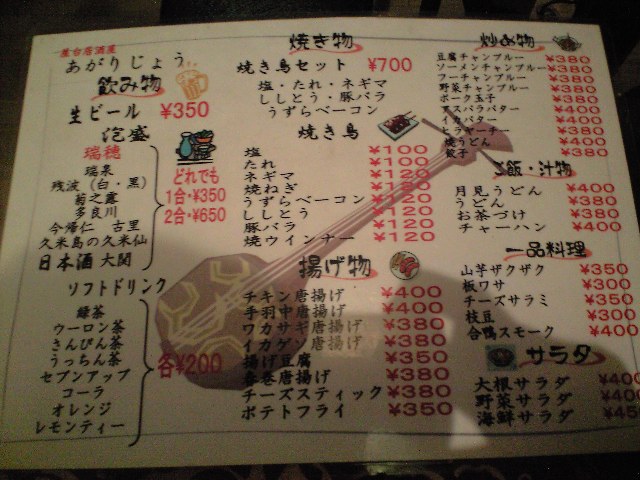 屋台居酒屋
あがりじょう
飲み物
生ビール ¥350
泡盛
瑞穂
瑞泉
残波（白・黒）
菊之露
多良川
今帰仁 古里
久米島の久米仙
日本酒 大関
どれでも
1合・¥350
2合・¥650
ソフトドリンク
緑茶
ウーロン茶
さんぴん茶
うっちん茶
セブンアップ
コーラ
オレンジ
レモンティー
各¥200
焼き物
焼き鳥セット ¥700
塩・たれ・ネギマ
ししとう・豚バラ
うずらベーコン
焼き鳥
塩 ¥100
たれ ¥100
ネギマ ¥120
焼ねぎ ¥120
うずらベーコン ¥120
ししとう ¥120
豚バラ ¥120
焼ウインナー ¥120
揚げ物
チキン唐揚げ ¥400
手羽中唐揚げ ¥400
ワカサギ唐揚げ ¥380
イカゲソ唐揚げ ¥380
揚げ豆腐 ¥350
春巻唐揚げ ¥380
チーズスティック ¥380
ポテトフライ ¥350
炒め物
豆腐チャンプルー ¥380
ソーメンチャンプルー ¥380
フーチャンプルー ¥380
野菜チャンプルー ¥380
ポーク玉子 ¥380
バター ¥400
イカバター ¥400
ヒラヤーチー ¥380
焼うどん ¥400
餃子 ¥380
ご飯・汁物
月見うどん ¥400
うどん ¥380
お茶づけ ¥380
チャーハン ¥400
一品料理
山芋ザクザク ¥350
板ワサ ¥300
チーズサラミ ¥350
枝豆 ¥300
合鴨スモーク ¥400
サラダ
大根サラダ ¥400
野菜サラダ ¥400
海鮮サラダ ¥45